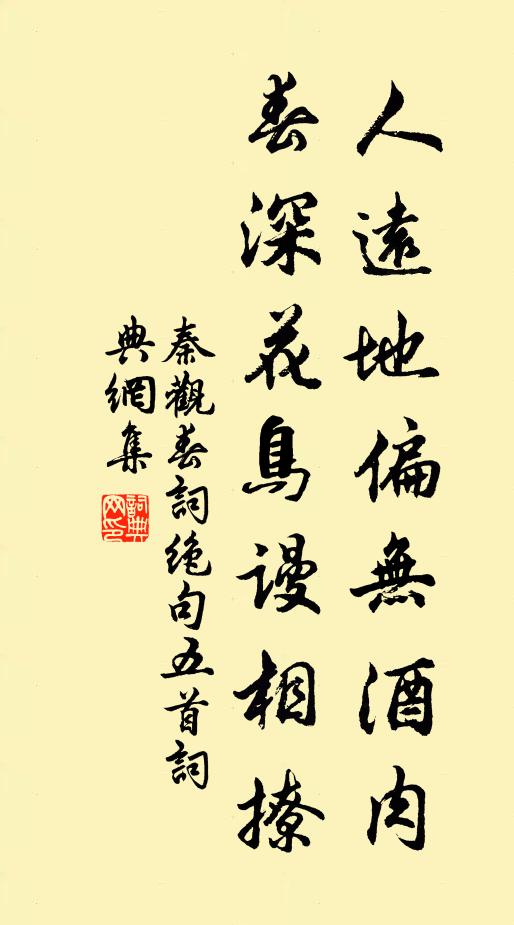 人遠地偏無酒肉
春深花鳥謾相撩
秦觀春詞絶句五首詞
典網集
詞典網印